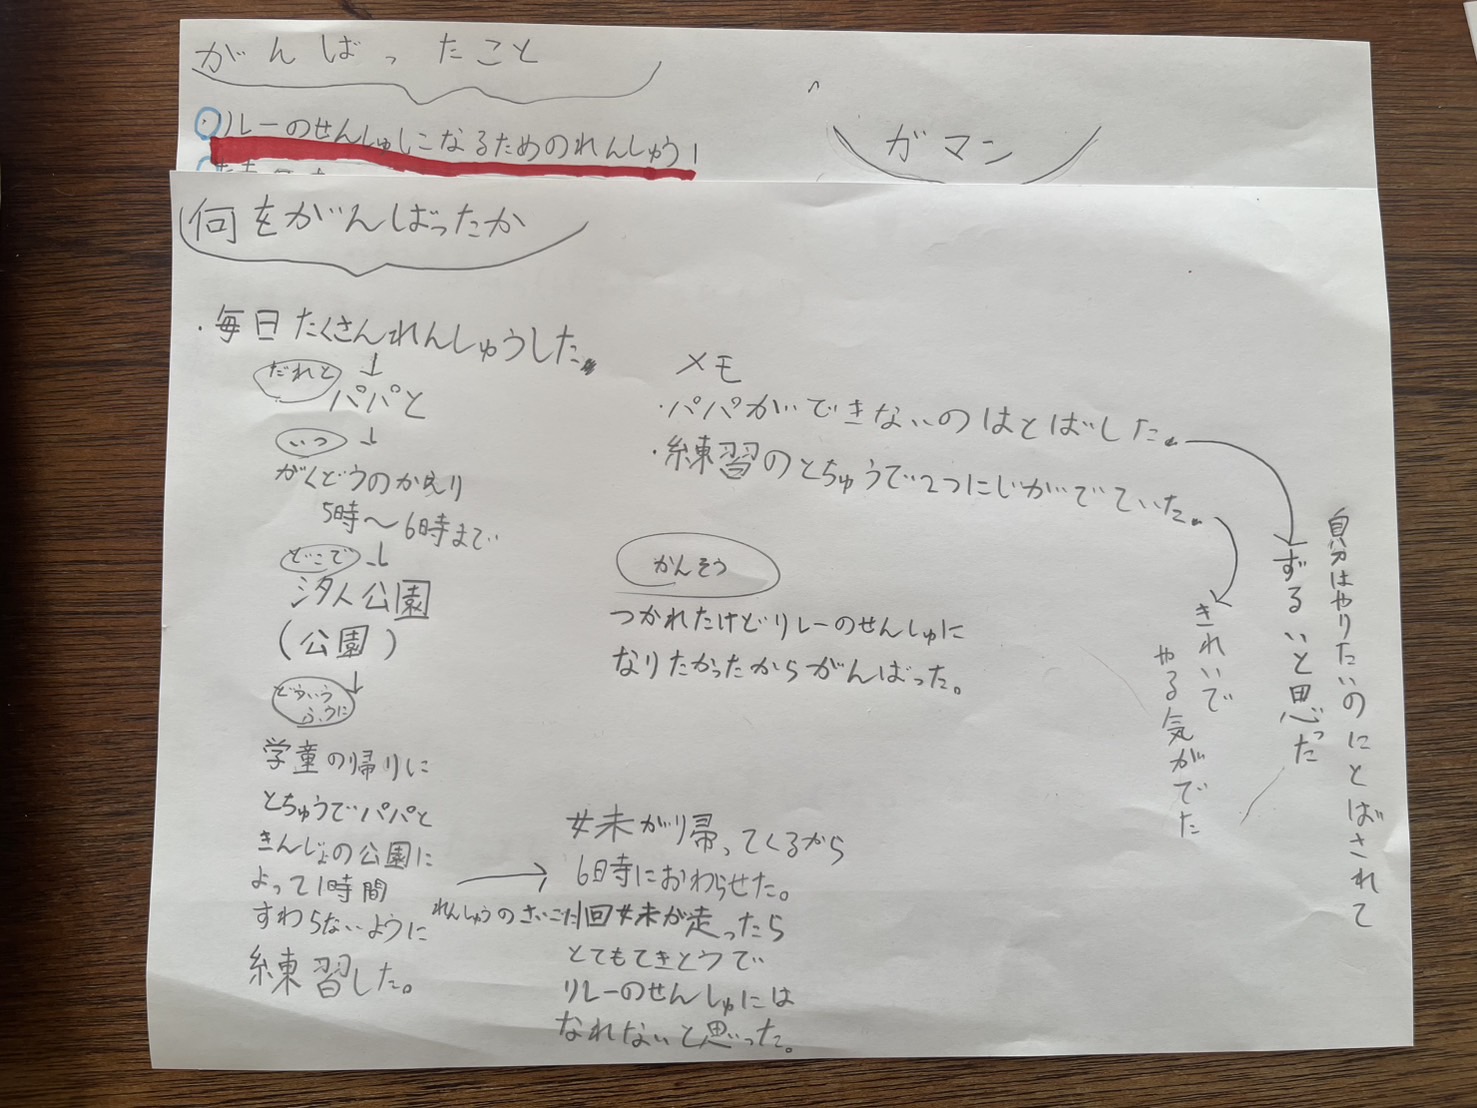 がんばったこと
・リレーのせんしゅになるためのれんしゅう!
ガマン
何をがんばったか
・毎日たくさんれんしゅうした。
だれと
パパと
いつ
がくどうのかえり
5時〜6時まで
どこで
汐入公園
(公園)
どういう
ふうに
学童の帰りに
とちゅうでパパと
きんじょの公園に
よって1時間
すわらないように
練習した。
メモ
・パパができないのはとばした。
・練習のとちゅうで2つにじがでていた。
自分はやりたいのにとばされて
ずるいと思った
きれいで
やる気がでた
かんそう
つかれたけどリレーのせんしゅに
なりたかったからがんばった。
妹が帰ってくるから
6時におわらせた。
れんしゅうのさいごに1回妹が走ったら
とてもてきとうで
リレーのせんしゅには
なれないと思った。